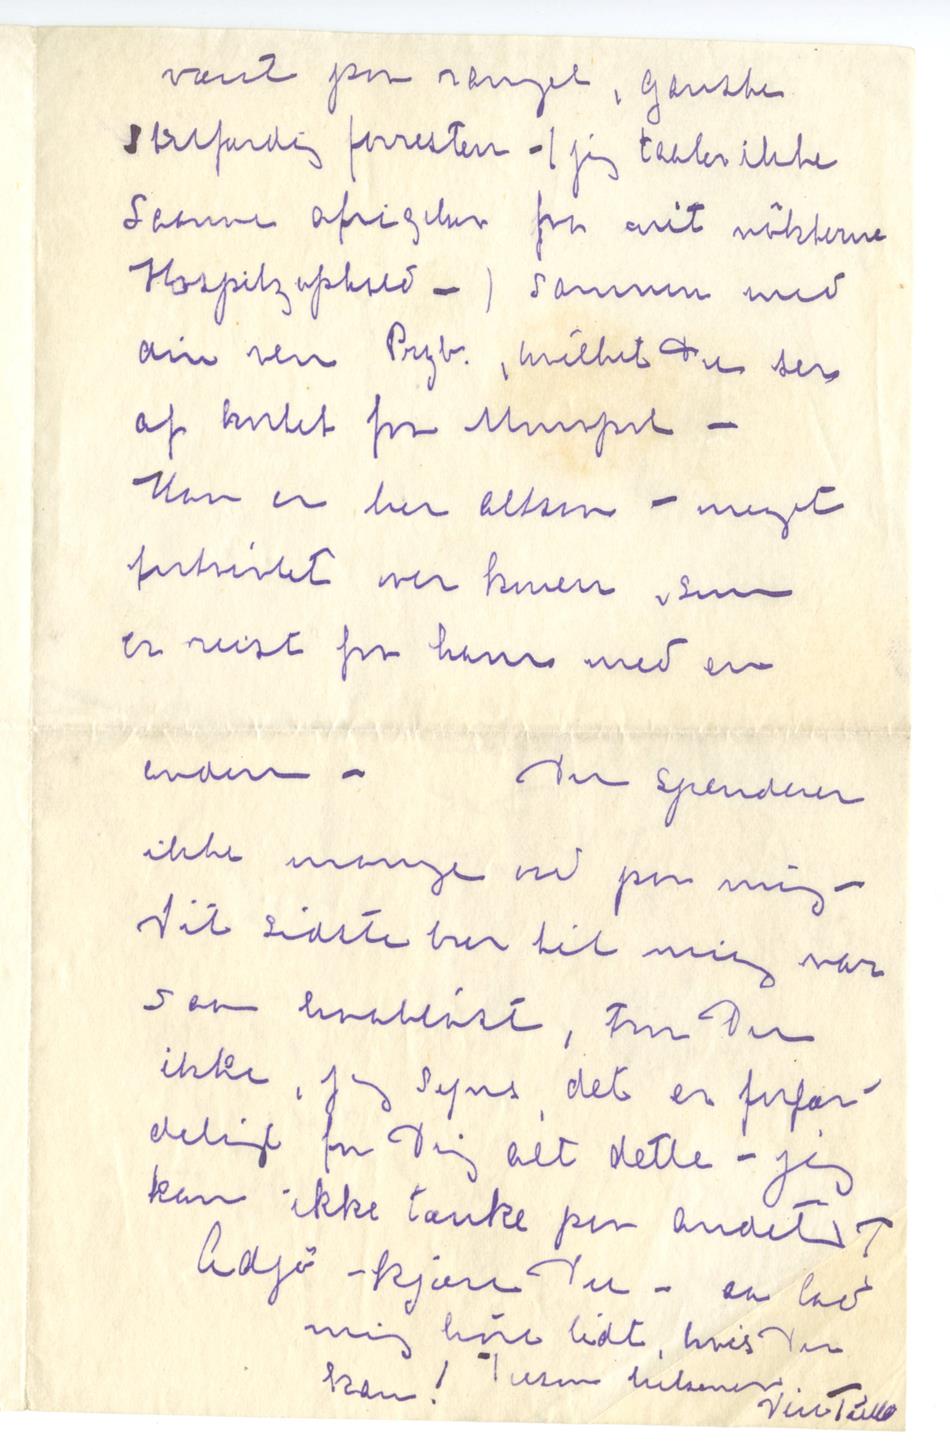 været paa rangel, ganske
skelfærdig forresten – ( jeg taaler ikke
saanne afvigelser fra mit nökterne
Hospitzophold – ) sammen med
din ven Przb., hvilket Du ser
af kortet fra
Han er her altsaa – meget
fortvivlet over konen, som
er reist fra ham med en
anden – Du spenderer
ikke mange ord paa mig –
Dit sidste brev til mig var
saa haablöst, tror Du
ikke, jeg synes, det er forfær-
deligt for Dig alt dette – jeg
kan ikke tænke paa andet
Adjö – kjære Du – aa lad
mig höre lidt, hvis Du
kan! Tusen hilsener
Din Tulla